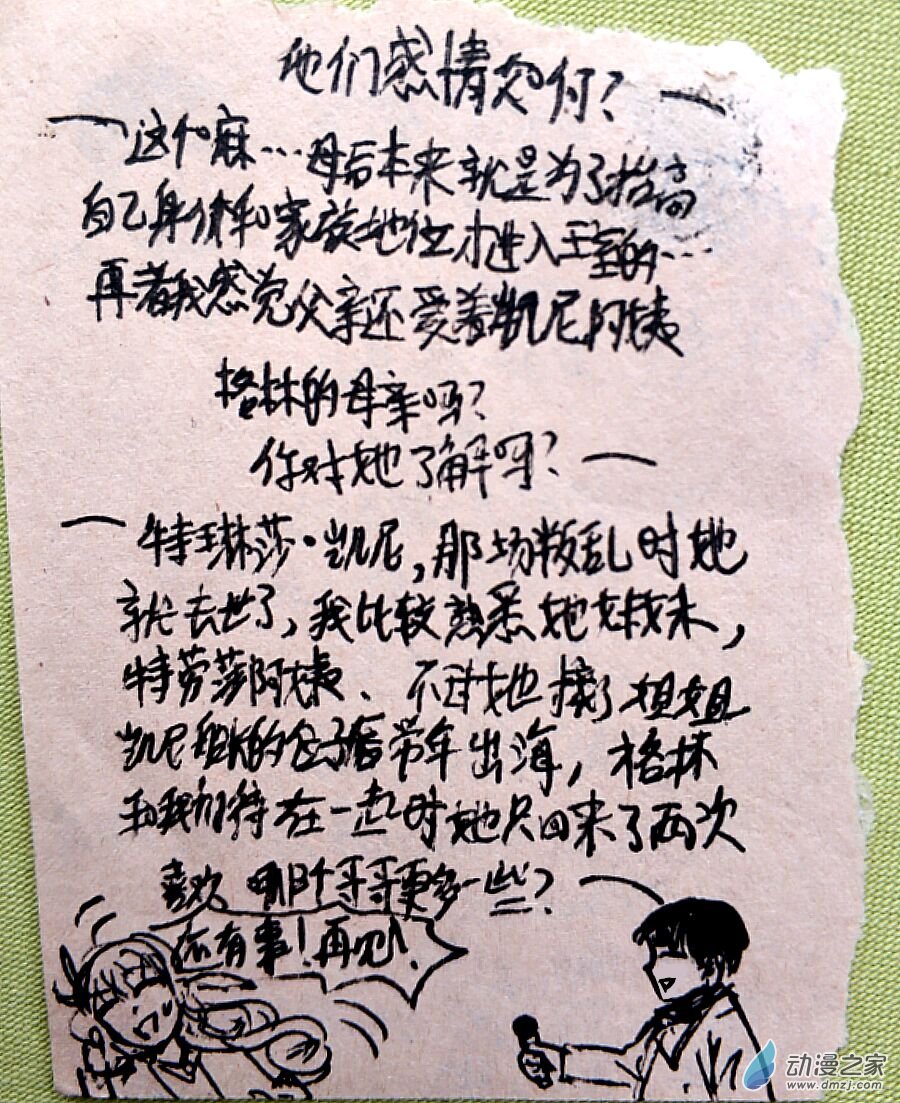 他们感情如何？
这个嘛…母后本来就是为了抬高
自己身价和家族地位才进入王室的…
再者我感觉父亲还爱着凯尼阿姨
格林的母亲吗？
你对她了解吗？
特琳莎·凯尼，那场叛乱时她
就去世了，我比较熟悉她妹妹，
特劳莎阿姨、不过她接了姐姐
凯尼 的位子后常年出海，格林
和我们待在一起时她只回来了两次
喜欢哪个哥哥更多一些？
还有事！再见！
动漫之家
www.dmzj.com